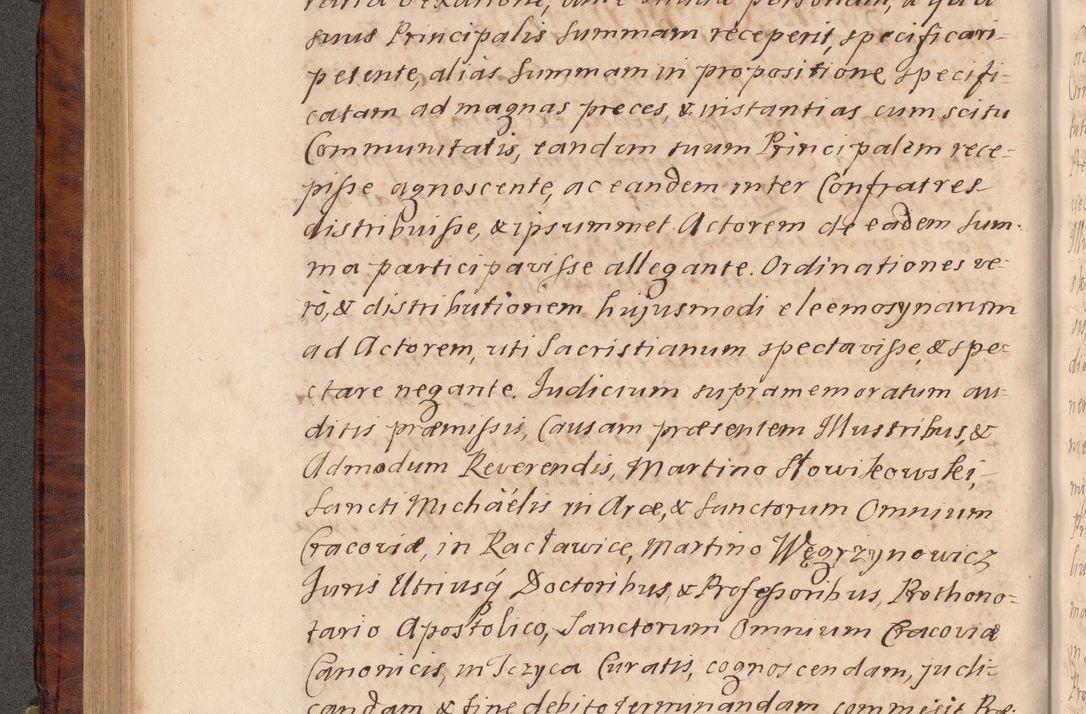 suus Principalis summam receperit, specificari
petente, aliàs summam in propositione specifi-
catam ad magnas preces, & instantias cum scitu
Communitatis, tandem suum Principalem rece-
pisse agnoscente, ac eandem inter Confratres
distribuisse, & ipsummet Actorem de eadem sum-
ma participavisse allegante. Ordinationes ve-
rò, & distributionem hujusmodi eleemosynarum
ad Actorem, uti Sacristianum spectavisse, & spe-
ctare negante. Judicium supramemoratum au-
ditis præmissis, Causam præsentem Illustribus, &
Admodum Reverendis, Martino Słowikowski,
Sancti Michäelis in Arce, & Sanctorum Omnium
Cracoviæ, in Racławice, Martino Węgrzynowicz
Juris Utriusq́ Doctoribus, & Professoribus, Prothono-
tario Apostolico, Sanctorum Omnium Cracoviæ
Canonicis, in Tczyca Curatis, cognoscendam, judi-
candam & fine debito terminandam commisit